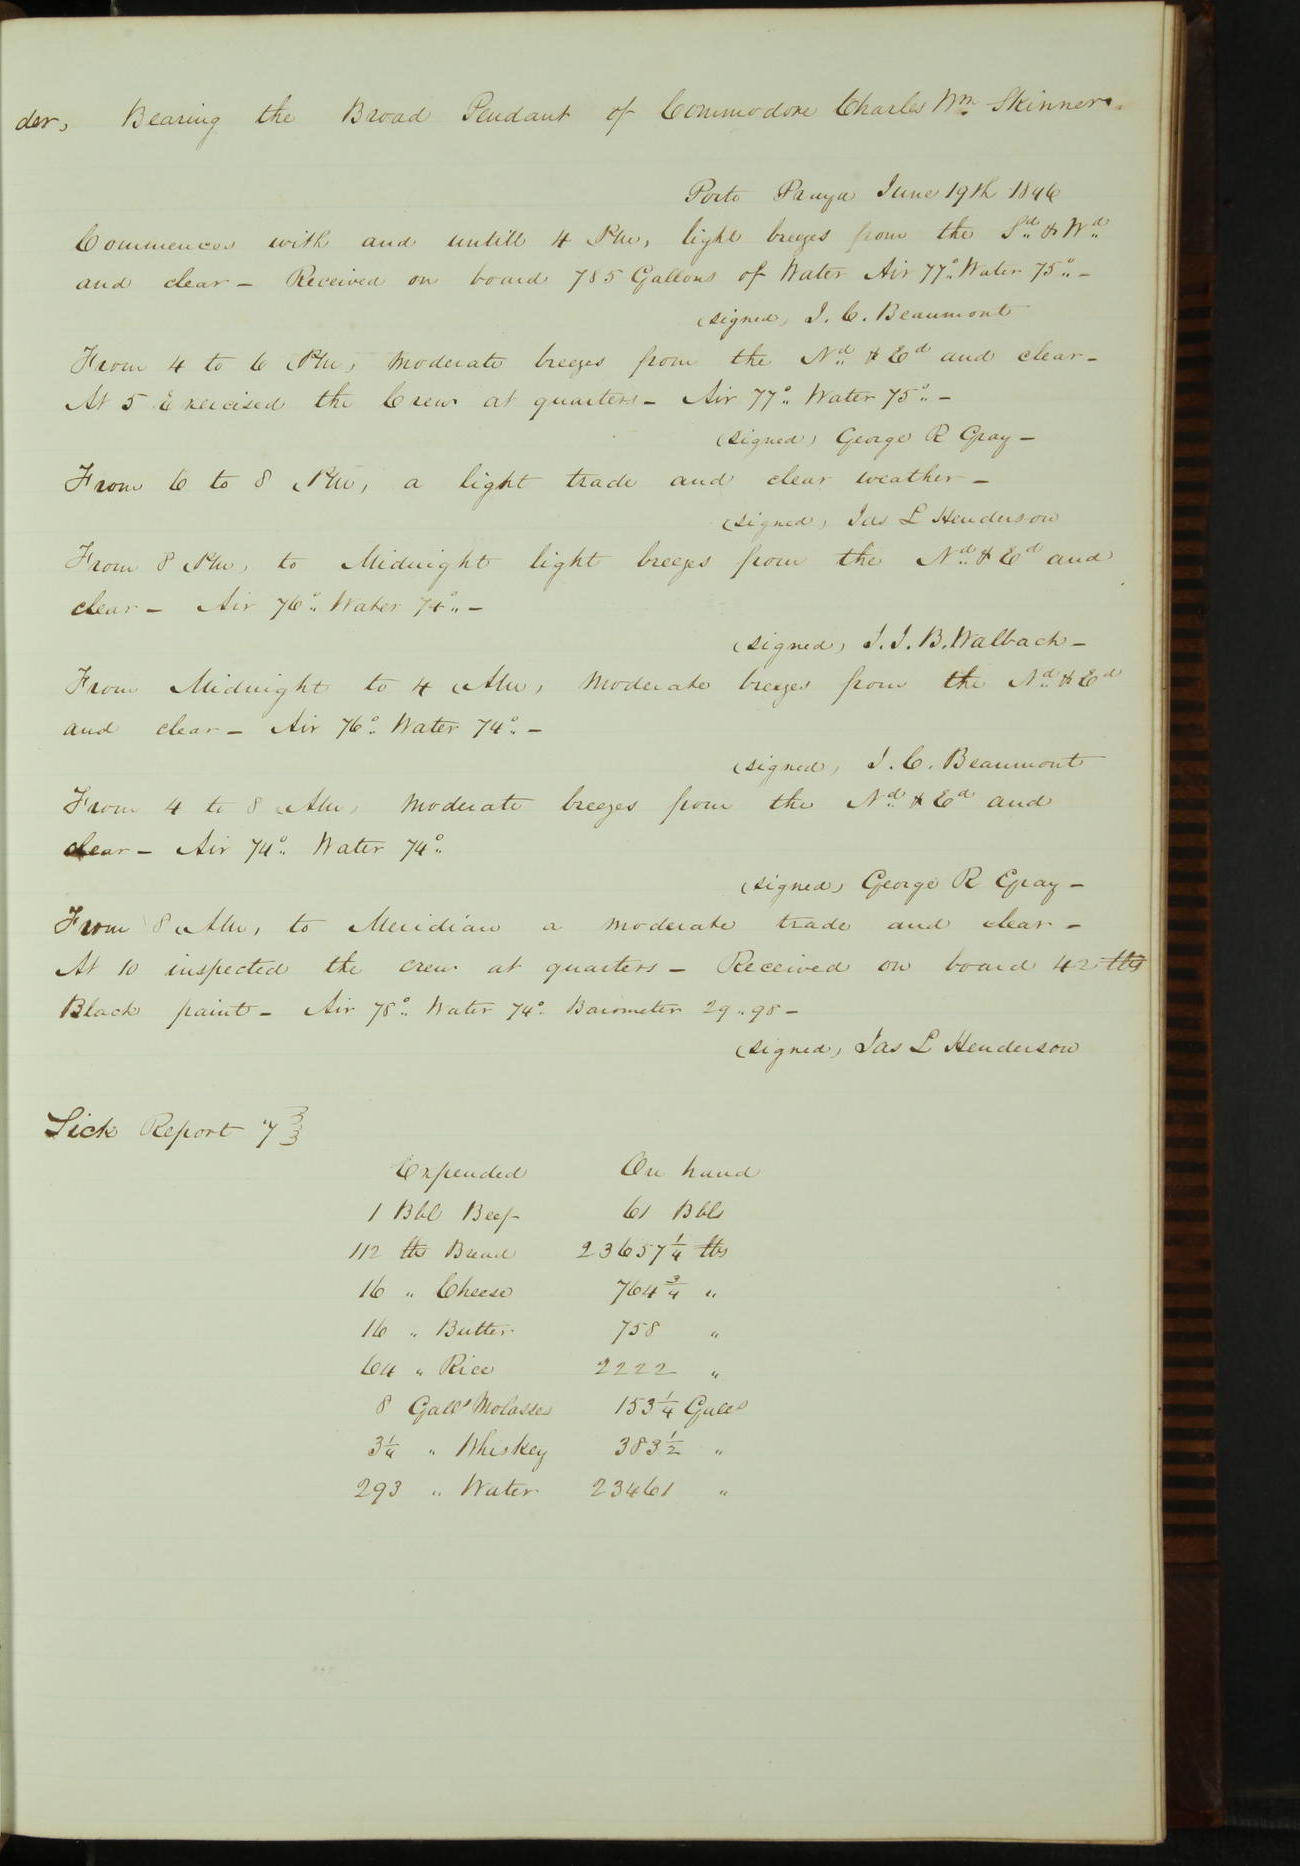 der, Bearing the Broad Pendant of Commodore Charles Wm Skinner.
Porto Praya June 19th 1846
Commences with and untill 4 Pm, light breezes from the Sd & Wd
and clear – Received on board 785 Gallons of Water Air 77° Water 75° –
(signed) J. C. Beaumont
From 4 to 6 Pm, moderate breezes from the Nd & Ed and clear –
At 5 Exercised the Crew at quarters – Air 77° Water 75° –
(signed) George R Gray –
From 6 to 8 Pm, a light trade and clear weather –
(signed) Jas L Henderson
From 8 Pm, to Midnight light breezes from the Nd & Ed and
clear – Air 76° Water 74° –
(signed) J. J. B. Walbach –
From Midnight to 4 Am, moderate breezes from the Nd & Ed
and clear – Air 76° Water 74° –
(signed) J. C. Beaumont
From 4 to 8 Am, moderate breezes from the Nd & Ed and
clear – Air 74° Water 74°
(signed) George R Gray –
From 8 Am, to Meridian a moderate trade and clear –
At 10 inspected the crew at quarters – Received on board 42 lbs
Black paint – Air 78° Water 74° Barometer 29..98 –
(signed) Jas L Henderson
Sick Report "7 3/3
Expended On hand
1 Bbl Beef 61 Bbls
112 lbs Bread 23657 1/4 lbs
16 " Cheese 764 3/4 "
16 " Butter 758 "
64 " Rice 2222 "
8 Galls Molasses 153 1/4 Galls
3 1/4 " Whiskey 383 1/2 "
293 " Water 23461 "